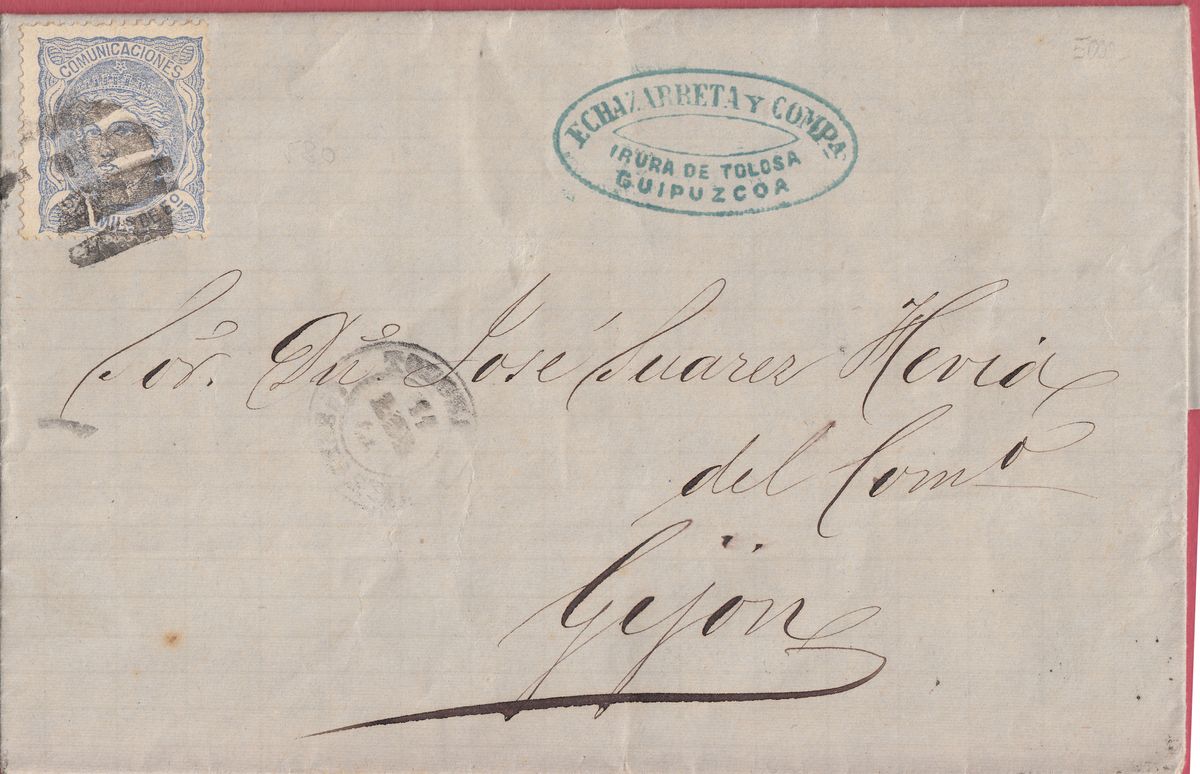 COMUNICACIONES
ECHAZARRETA Y COMPA.
IRURA DE TOLOSA
GUIPUZCOA
Sór. Dn. José Suarez Hevia
del Como
Gijon